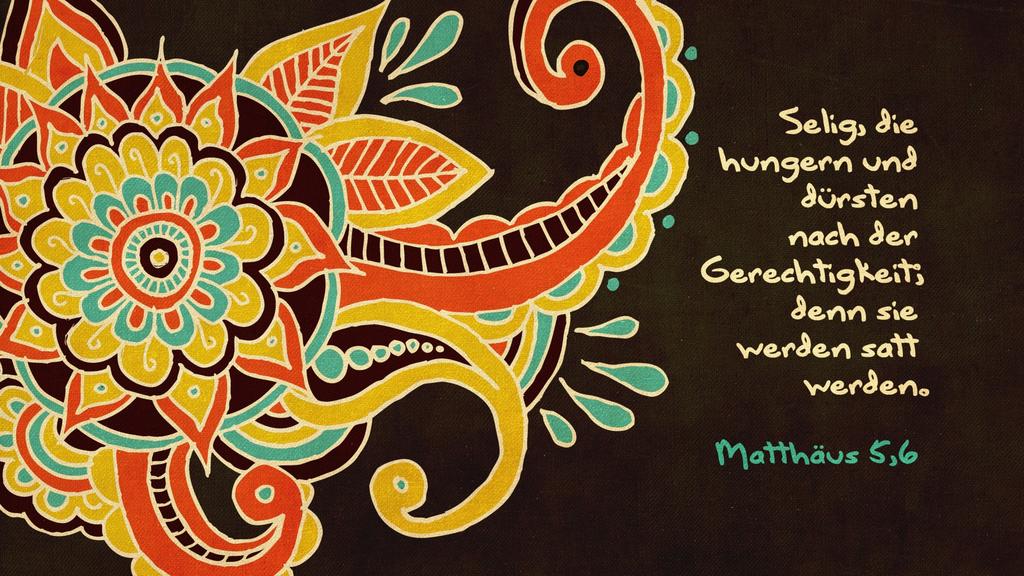 Selig, die
hungern und
dürsten
nach der
Gerechtigkeit;
denn sie
werden satt
werden.
Matthäus 5,6